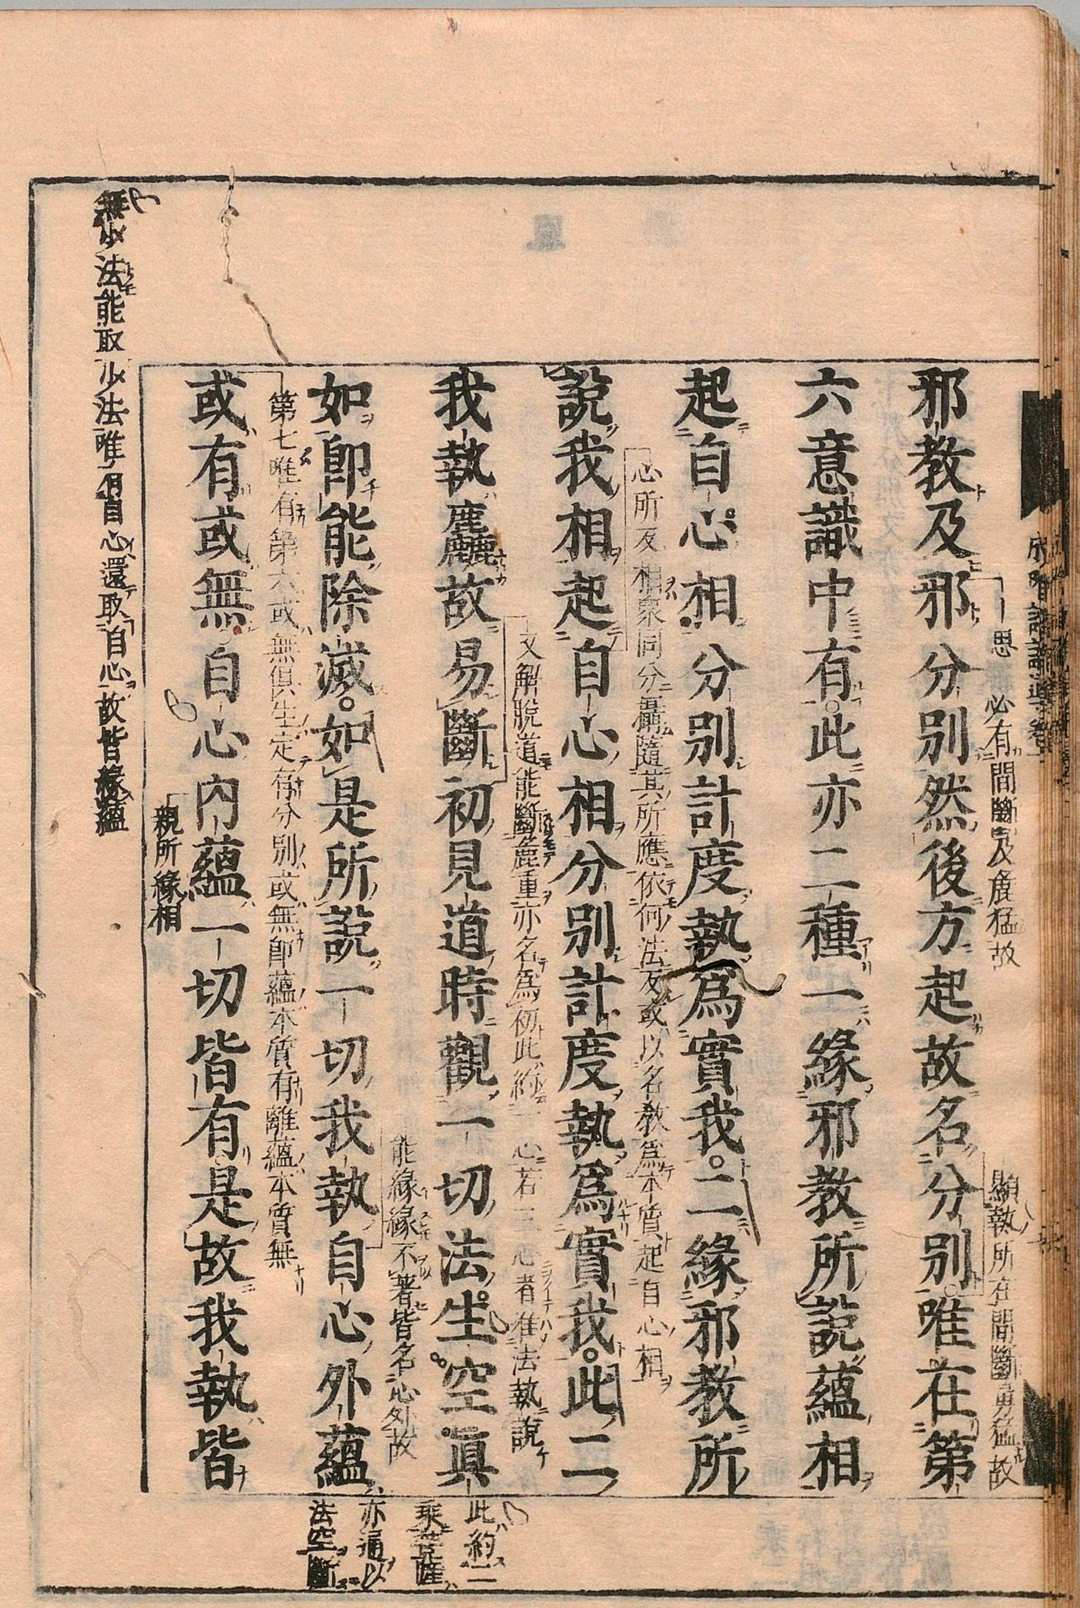 邪教及邪分別然後方起故名分別唯在第
六意識中有此亦二種一緣邪教所說蘊相
起自心相分別計度執爲實我。二緣邪教所
說我相起自心相分別計度執爲實我。此二
我執麤故易斷初見道時觀一切法生空眞
如卽能除滅。如是所說一切我執自心外蘊
或有或無自心內蘊一切皆有是故我執皆
思
必有間斷及麁猛故
顯執所在間斷勇猛故
隨其所應依何法
以名教爲本質起自心相
又解脫道能斷麁重亦名爲初此
心若三心者准法執說
能緣緣不著皆名心外故
第七唯有第六或無俱生定有分別或無卽蘊本質有離蘊本質無
親所緣相
無少法能取少法唯有自心還取自心故皆緣蘊
此約二
亦通以
法空斷